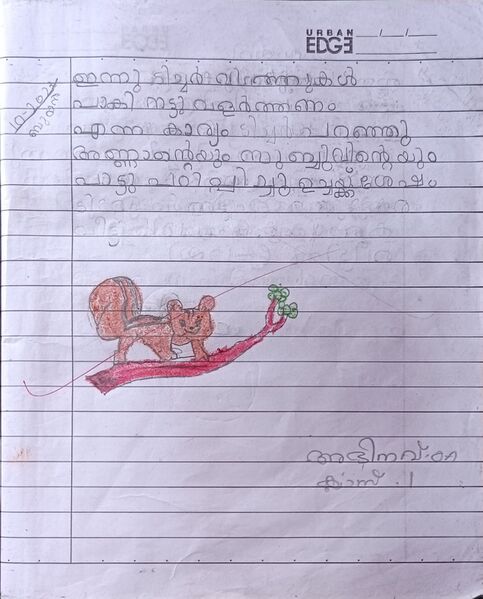 URBAN
EDGE
ഇന്നു ടിച്ചർ വിത്തുകൾ
പാകി നട്ടു വളർത്തണം
എന്ന കാര്യം ടിച്ചർ പറഞ്ഞു
അണ്ണാന്റെയും
പാട്ടു പഠിപ്പിച്ചു ഉച്ചയ്ക്ക് ശേഷം
ബുധൻ
അഭിനവ്
ക്ലാസ് .1